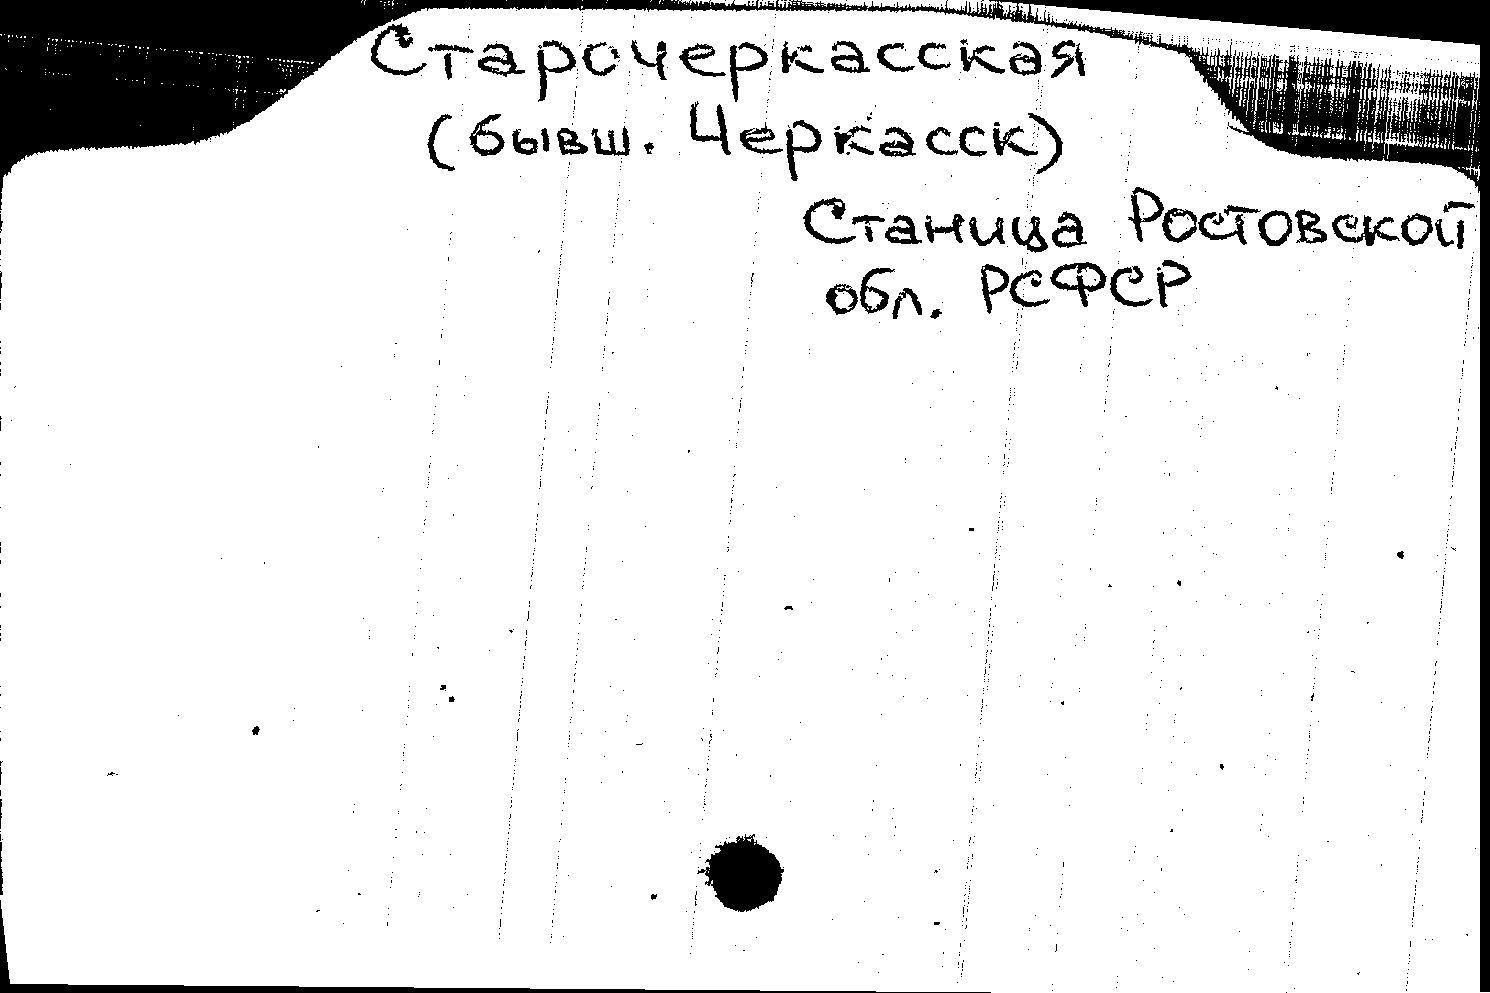 Старочеркасская
(бывш. Черкасск)
Станица Ростовской
обл. РСФСР